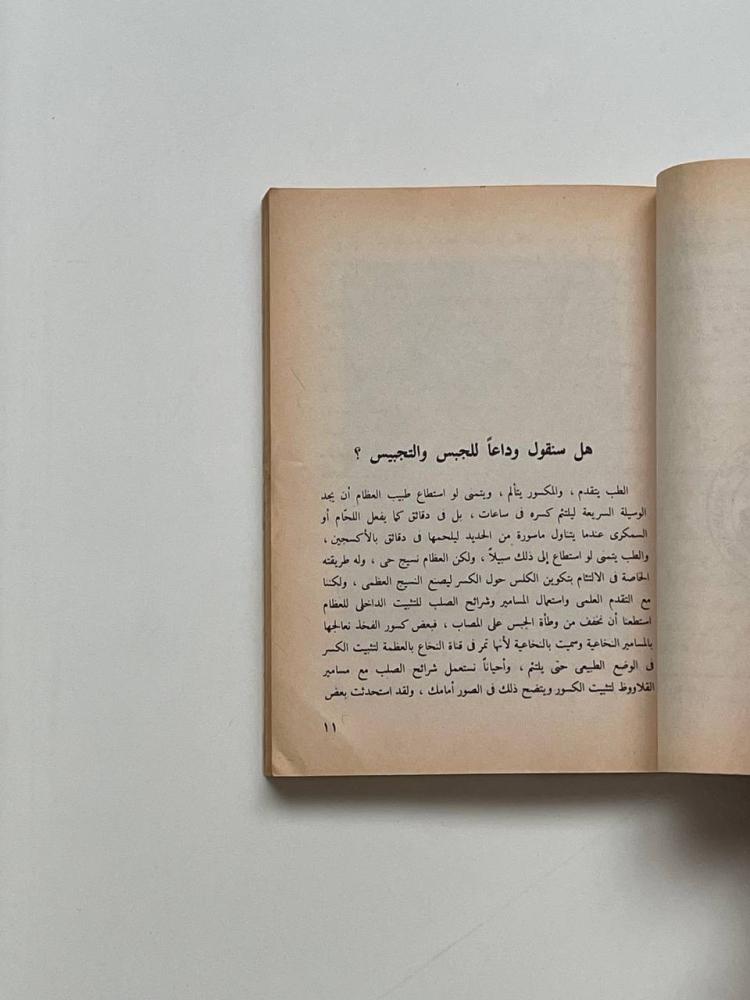 هل سنقول وداعاً للجبس والتجبيس ؟
الطب يتقدم ، والمكسور يتألم ، ويتمنى لو استطاع طبيب العظام أن يجد
الوسيلة السريعة ليلتئم كسره فى ساعات ، بل فى دقائق كما يفعل اللحّام أو
السمكرى عندما يتناول ماسورة من الحديد ليلحمها فى دقائق بالأكسجين ،
والطب يتمنى لو استطاع إلى ذلك سبيلاً ، ولكن العظام نسيج حى ، وله طريقته
الخاصة فى الالتئام بتكوين الكلس حول الكسر ليصنع النسيج العظمى ، ولكننا
مع التقدم العلمى واستعمال المسامير وشرائح الصلب للتثبيت الداخلى للعظام
استطعنا أن نخفف من وطأة الجبس على المصاب ، فبعض كسور الفخذ نعالجها
بالمسامير النخاعية وسميت بالنخاعية لأنها تمر فى قناة النخاع بالعظمة لتثبيت الكسر
فى الوضع الطبيعى حتى يلتئم ، وأحياناً نستعمل شرائح الصلب مع مسامير
القلاووظ لتثبيت الكسور ويتضح ذلك فى الصور أمامك ، ولقد استحدثت بعض
١١